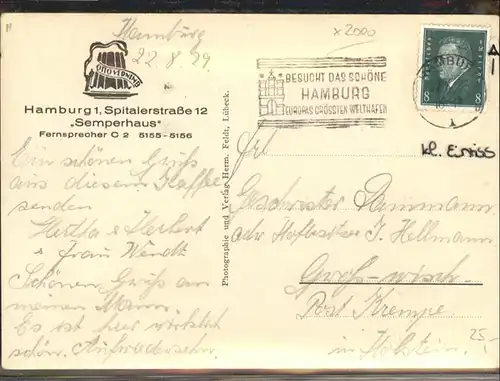 Hamburg
22.8.29.
x 2000
OTTO VERNIMB
Hamburg 1, Spitalerstraße 12
„Semperhaus"
Fernsprecher C 2 8155-8156
Ein schönen Gruß
aus diesem Kaffee
senden
Hertha & Herbert
& Frau Wendt
Schönen Gruß an
meinen Mann
Es ist hier wirklich
schön. Aufwiedersehn.
Photographie und Verlag Herm. Feldt, Lübeck.
BESUCHT DAS SCHÖNE
HAMBURG
EUROPAS GRÖSSTEN WELTHAFEN
8 8
kl. Einriss
Geschwister Dammann
adr Hofbesitzer J. Hellmann
Post Krempe
in Holstein.
25,-